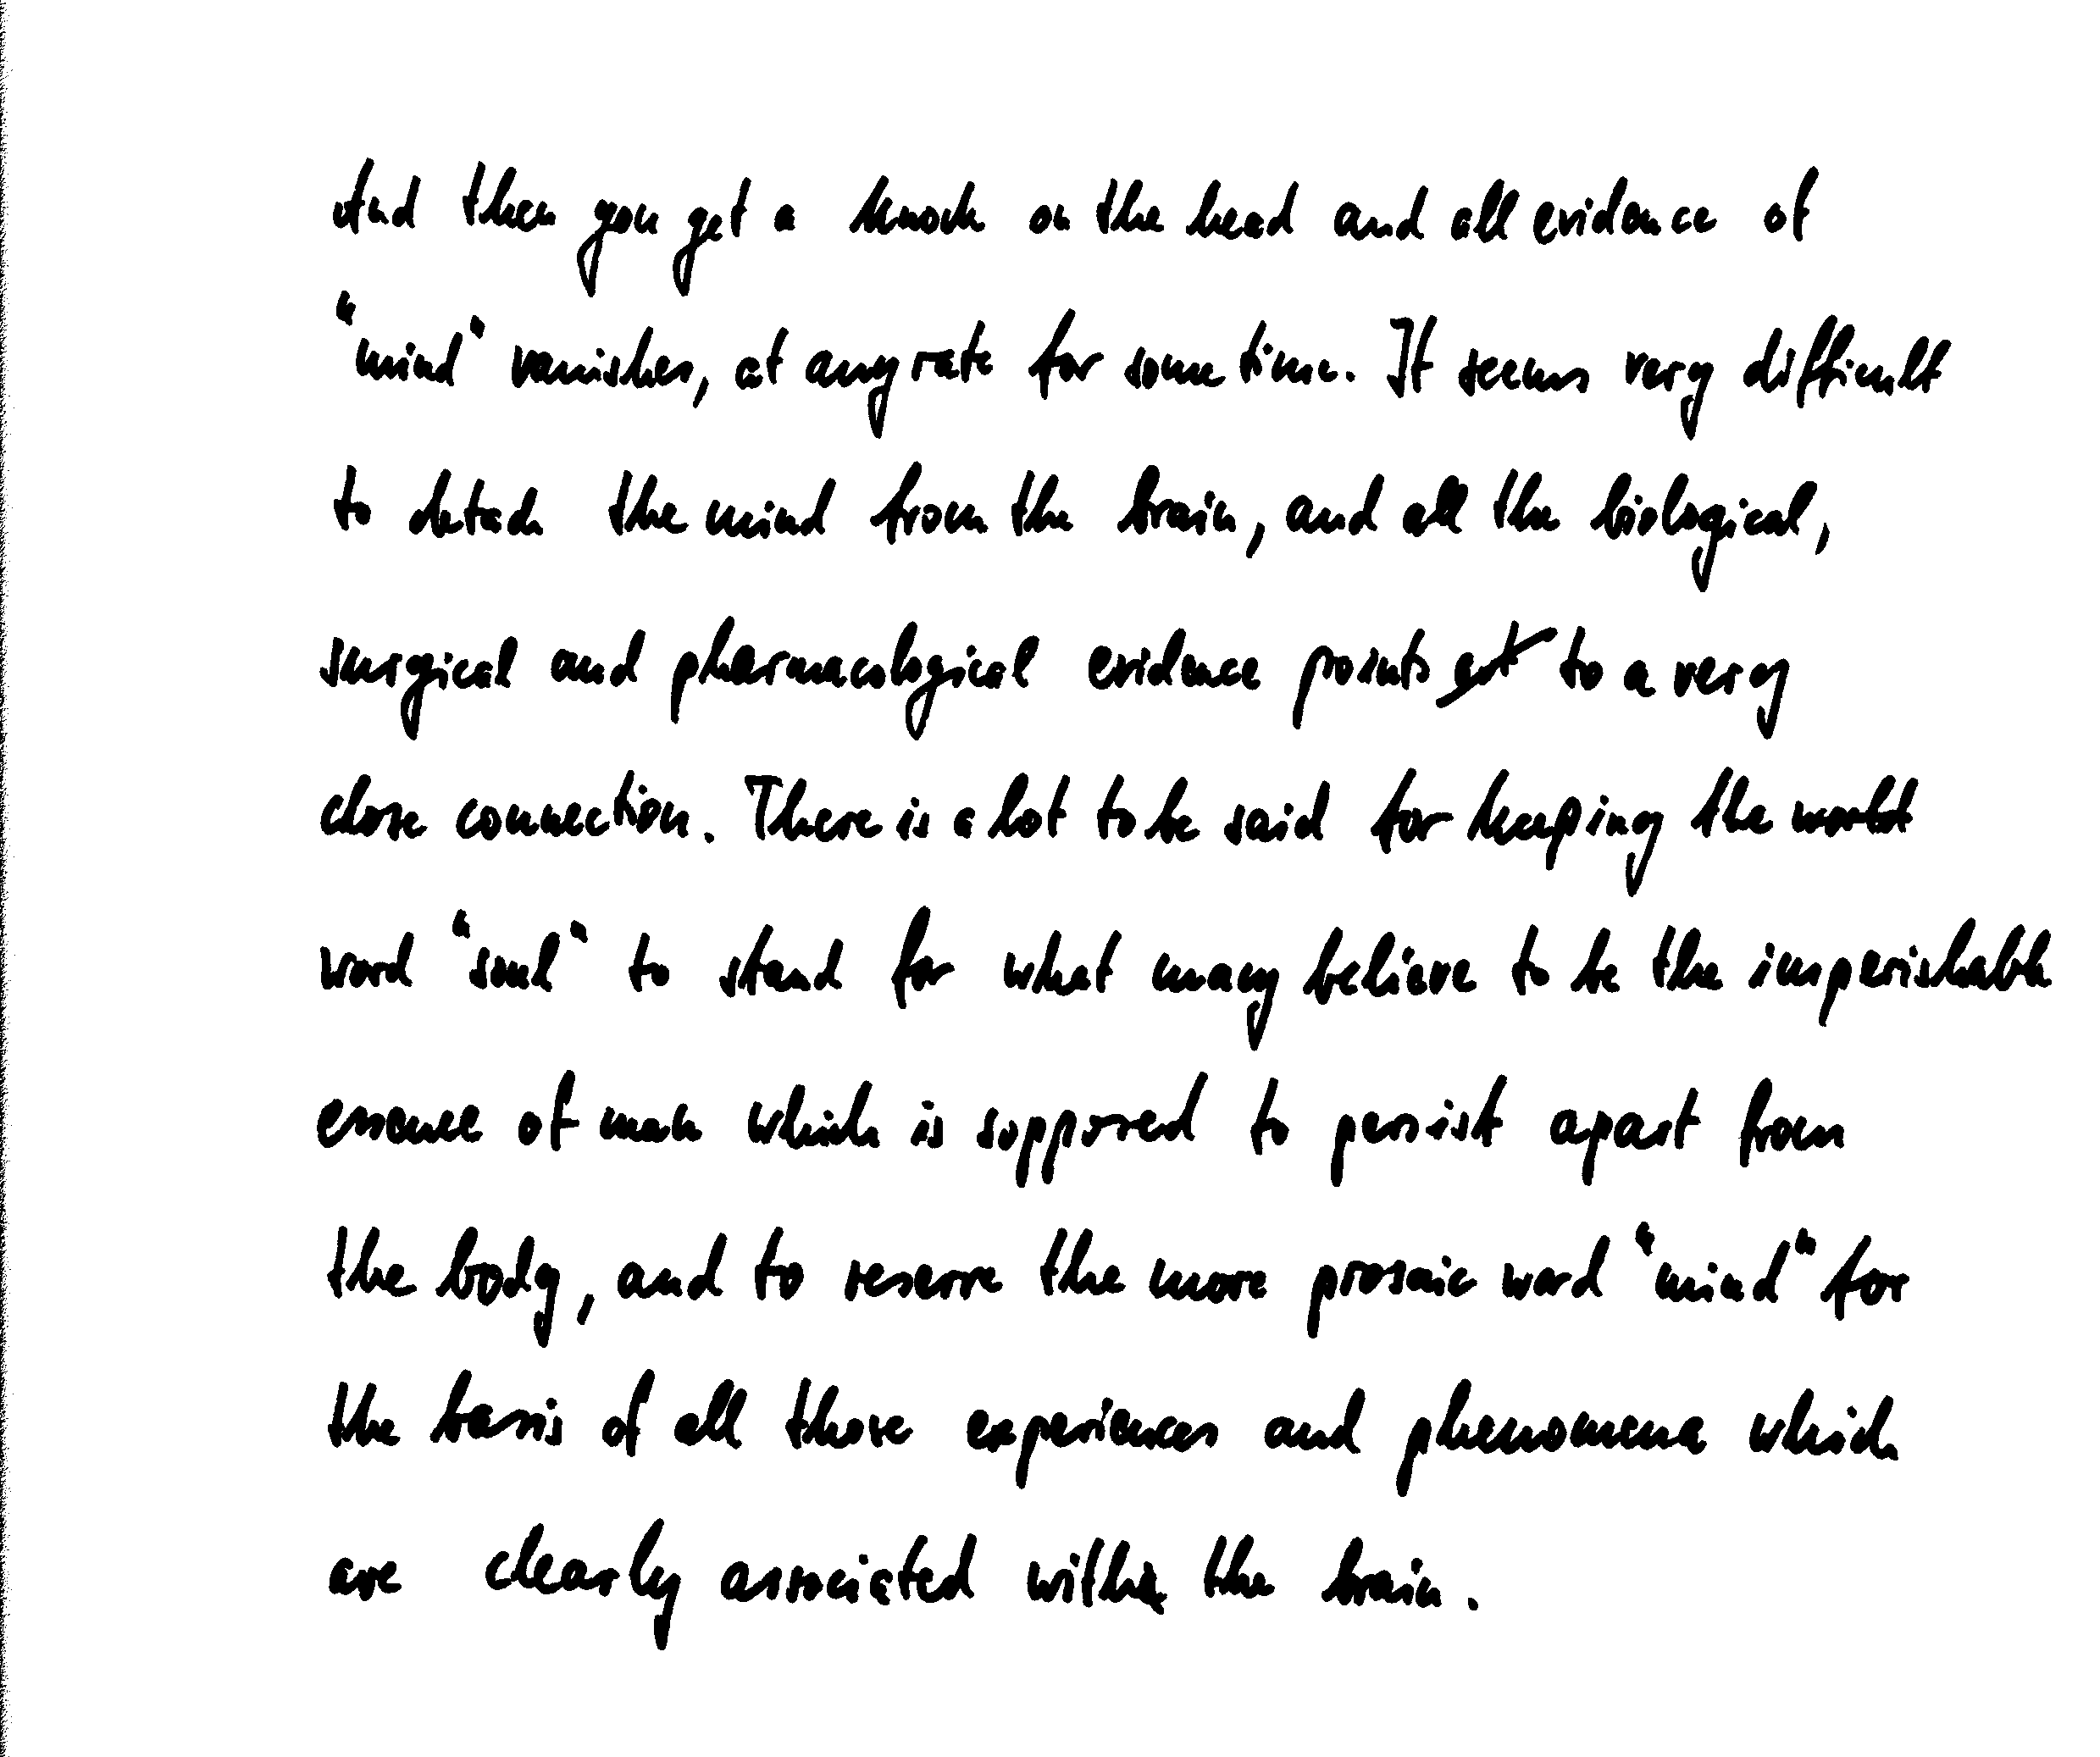 And then you get a knock on the head and all evidence of
"mind" vanishes, at any rate for some time. It seems very difficult
to detach the mind from the brain, and all the biological,
surgical and pharmacological evidence points to a very
close connection. There is a lot to be said for keeping the world
word "soul" to stand for what many believe to be the imperishable
essence of man which is supposed to persist apart from
the body, and to reserve the more prosaic word "mind" for
the basis of all those experiences and phenomena which
are clearly associated with the brain.